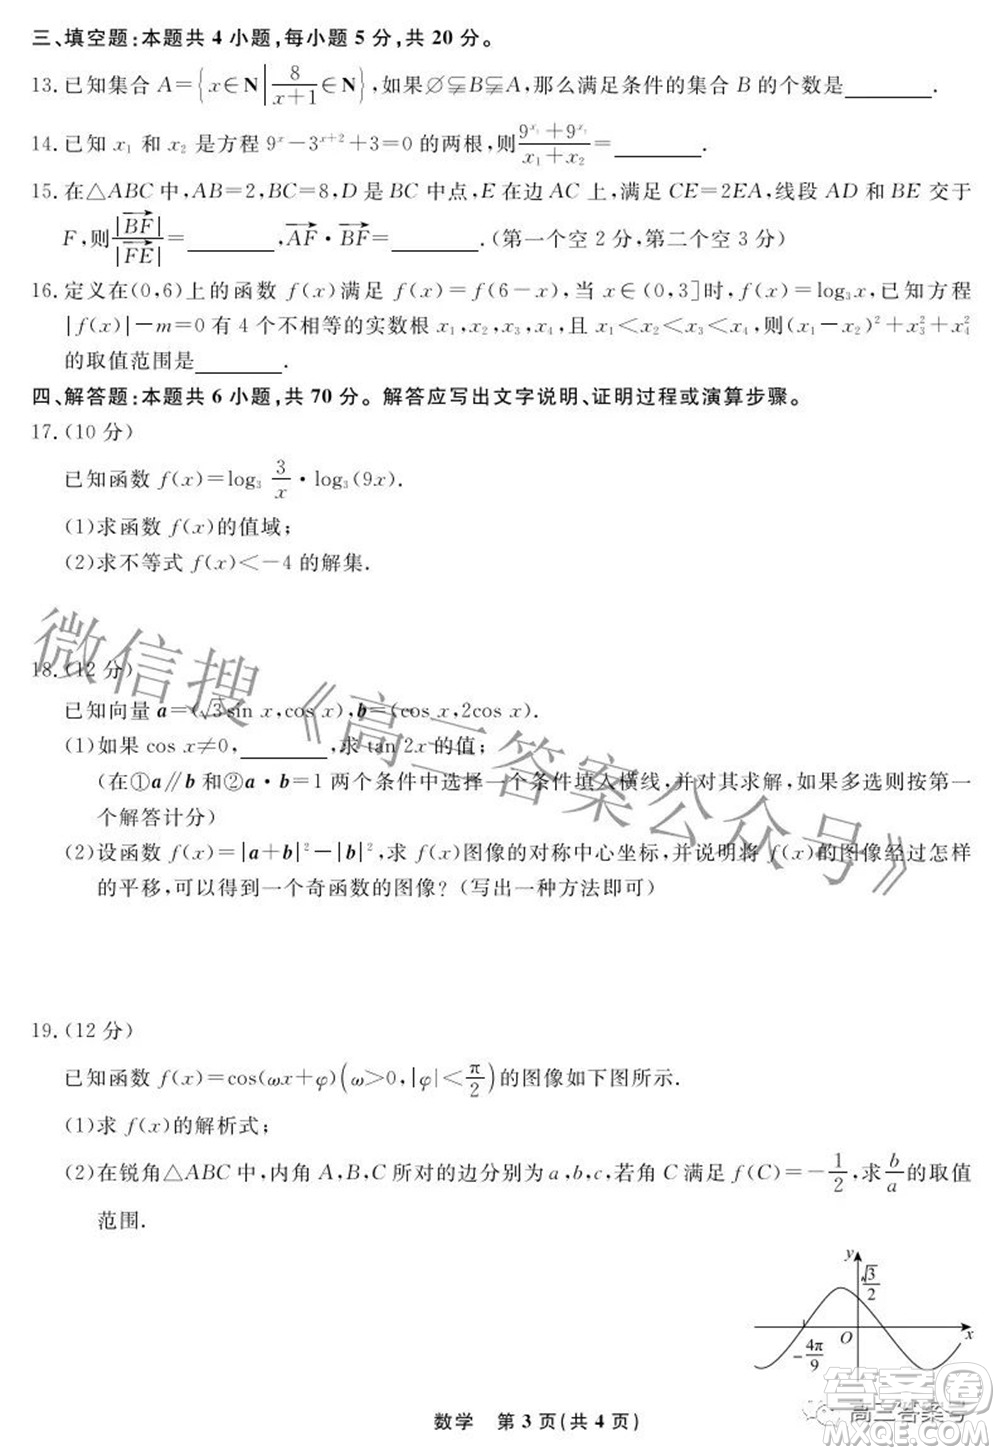 三、填空题:本题共 4 小题,每小题 5 分,共 20 分。
13.已知集合 A={x∈N|8/(x+1)∈N},如果∅⫋B⫋A,那么满足条件的集合 B 的个数是________.
14.已知 x₁ 和 x₂ 是方程 9^x-3^(x+2)+3=0 的两根,则(9^x₁+9^x₂)/(x₁+x₂)=________.
15.在△ABC 中,AB=2,BC=8,D 是 BC 中点,E 在边 AC 上,满足 CE=2EA,线段 AD 和 BE 交于
F,则|BF→|/|FE→|=________,AF→·BF→=________.(第一个空 2 分,第二个空 3 分)
16.定义在(0,6)上的函数 f(x)满足 f(x)=f(6-x),当 x∈(0,3]时,f(x)=log₃x,已知方程
|f(x)|-m=0 有 4 个不相等的实数根 x₁,x₂,x₃,x₄,且 x₁<x₂<x₃<x₄,则(x₁-x₂)²+x₃²+x₄²
的取值范围是________.
四、解答题:本题共 6 小题,共 70 分。解答应写出文字说明、证明过程或演算步骤。
17.(10 分)
已知函数 f(x)=log₃ 3/x·log₃(9x).
(1)求函数 f(x)的值域;
(2)求不等式 f(x)<-4 的解集.
18.(12 分)
已知向量 a=(√3sin x,cos x),b=(cos x,2cos x).
(1)如果 cos x≠0,________,求 tan 2x 的值;
(在①a∥b 和②a·b=1 两个条件中选择一个条件填入横线,并对其求解,如果多选则按第一
个解答计分)
(2)设函数 f(x)=|a+b|²-|b|²,求 f(x)图像的对称中心坐标,并说明将 f(x)的图像经过怎样
的平移,可以得到一个奇函数的图像?(写出一种方法即可)
微信搜《高三答案公众号》
19.(12 分)
已知函数 f(x)=cos(ωx+φ)(ω>0,|φ|<π/2)的图像如下图所示.
(1)求 f(x)的解析式;
(2)在锐角△ABC 中,内角 A,B,C 所对的边分别为 a,b,c,若角 C 满足 f(C)=-1/2,求 b/a 的取值
范围.
y
√3/2
O
x
-4π/9
高三答案号
答案圈
MXQE.COM
数学 第 3 页(共 4 页)